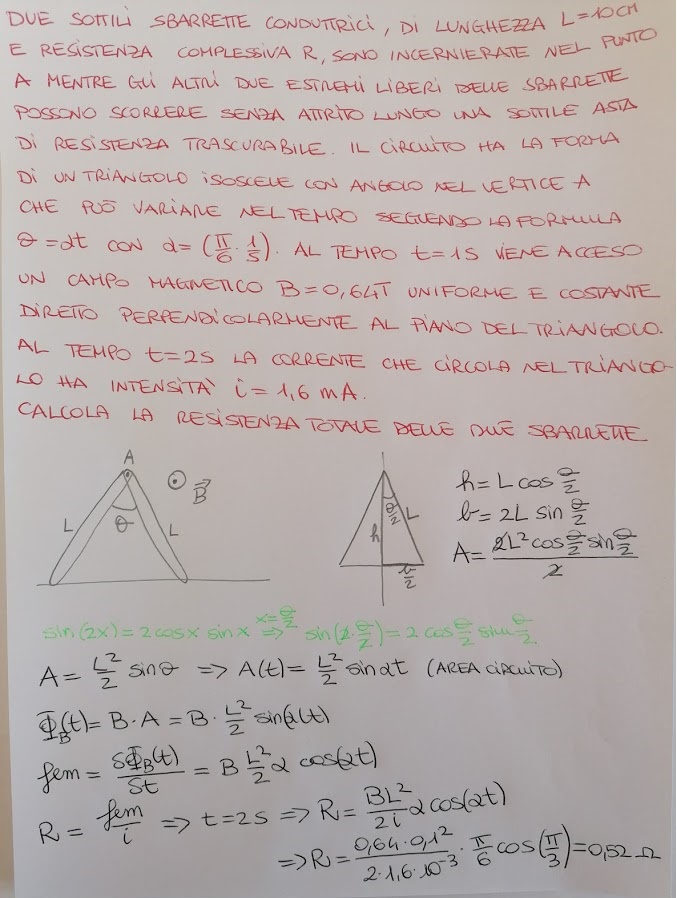 DUE SOTTILI SBARRETTE CONDUTTRICI, DI LUNGHEZZA L=10CM
E RESISTENZA COMPLESSIVA R, SONO INCERNIERATE NEL PUNTO
A MENTRE GLI ALTRI DUE ESTREMI LIBERI DELLE SBARRETTE
POSSONO SCORRERE SENZA ATTRITO LUNGO UNA SOTTILE ASTA
DI RESISTENZA TRASCURABILE. IL CIRCUITO HA LA FORMA
DI UN TRIANGOLO ISOSCELE CON ANGOLO NEL VERTICE A
CHE PUÒ VARIARE NEL TEMPO SEGUENDO LA FORMULA
θ=αt CON α=(π/6 · 1/s). AL TEMPO t=1s VIENE ACCESO
UN CAMPO MAGNETICO B=0,64T UNIFORME E COSTANTE
DIRETTO PERPENDICOLARMENTE AL PIANO DEL TRIANGOLO.
AL TEMPO t=2s LA CORRENTE CHE CIRCOLA NEL TRIANGO-
LO HA INTENSITÀ i=1,6 mA.
CALCOLA LA RESISTENZA TOTALE DELLE DUE SBARRETTE
A
B⃗
L θ L
θ/2 L
h
b/2
h = L cos θ/2
b = 2L sin θ/2
A = 2L² cos θ/2 sin θ/2 / 2
sin(2x) = 2 cosx sinx x=θ/2 ⇒ sin(2·θ/2) = 2 cos θ/2 sin θ/2
A = L²/2 sinθ ⇒ A(t) = L²/2 sinαt (AREA CIRCUITO)
Φ_B(t) = B·A = B· L²/2 sin(αt)
fem = δΦ_B(t)/δt = B L²/2 α cos(αt)
R = fem/i ⇒ t=2s ⇒ R = BL²/2i α cos(αt)
⇒ R = 0,64·0,1²/2·1,6·10⁻³ · π/6 cos(π/3) = 0,52 Ω